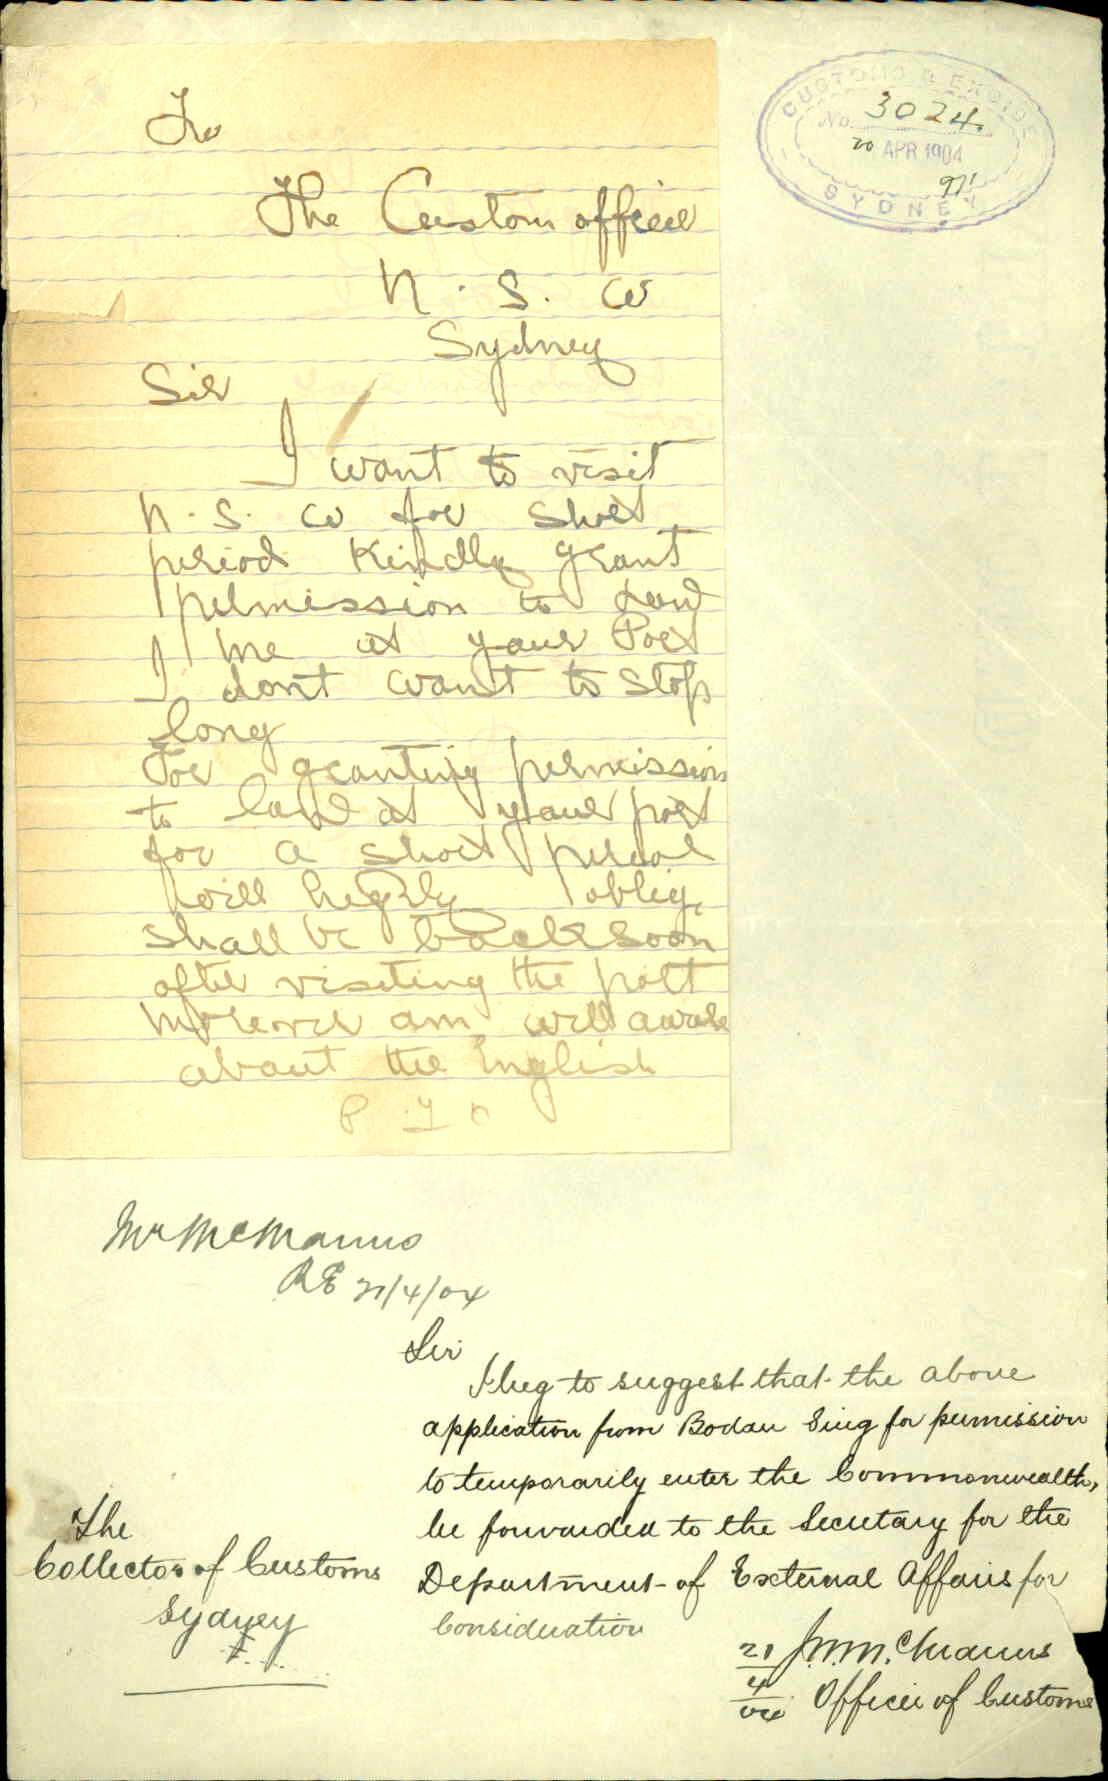 To
The Custom officer
N. S. W
Sydney
Sir
I want to visit
N. S. W for short
period Kindly grant
permission to land
me at your Port
I dont want to stop
long
For granting permission
to land at your port
for a short period
will highly oblige
shall be back soon
after visiting the port
Moreover am well aware
about the English
P T O
CUSTOMS & EXCISE
No. 3024
20 APR 1904
SYDNEY
Mr McManus
21/4/04
Sir
I beg to suggest that the above
application from Bodan Sing for permission
to temporarily enter the Commonwealth,
be forwarded to the Secretary for the
Department of External Affairs for
Consideration
J. M. McManus
21/4/04 Officer of Customs
The
Collector of Customs
Sydney